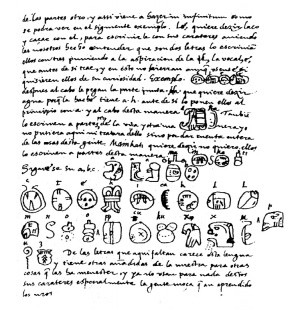 de las partes otro, y assi viene a hazer in infinitum como
se podra ver en el siguiente exemplo. Lé, quiere dezir laço
y caçar con el, para escrivirle con sus carateres aviendo
les nosotros hecho entender que son dos letras lo escrivian
ellos con tres puniendo a la aspiracion de la l, la vocal e,
que antes de si trae, y en esto no hierran aunque
quisieren ellos de su curiosidad. Exemplo.
despues al cabo le pegan la parte junta. Ha que quiere dezir
agua porque la hache tiene a, h, ante de si lo ponen ellos al
principio con a, y al cabo desta manera Tambiē
lo escriven a partes, de la una y otra manera yo
no pusiera aqui ni tratara dello sino por dar cuenta entera
de las cosas desta gente. Mainkati quiere dezir no quiero, ellos
lo escriven a partes desta manera
Siguese su a, b, c.
ca k l
m n o o pp p cu ku x x u
u z
De las letras que aqui faltan carece esta lengua
y tiene otras añadidas de la nuestra para otras
cosas q̄ las ha menester, y ya no usan para nada destos
sus carateres especialmente la gente moça q̄ an aprendido
los nros